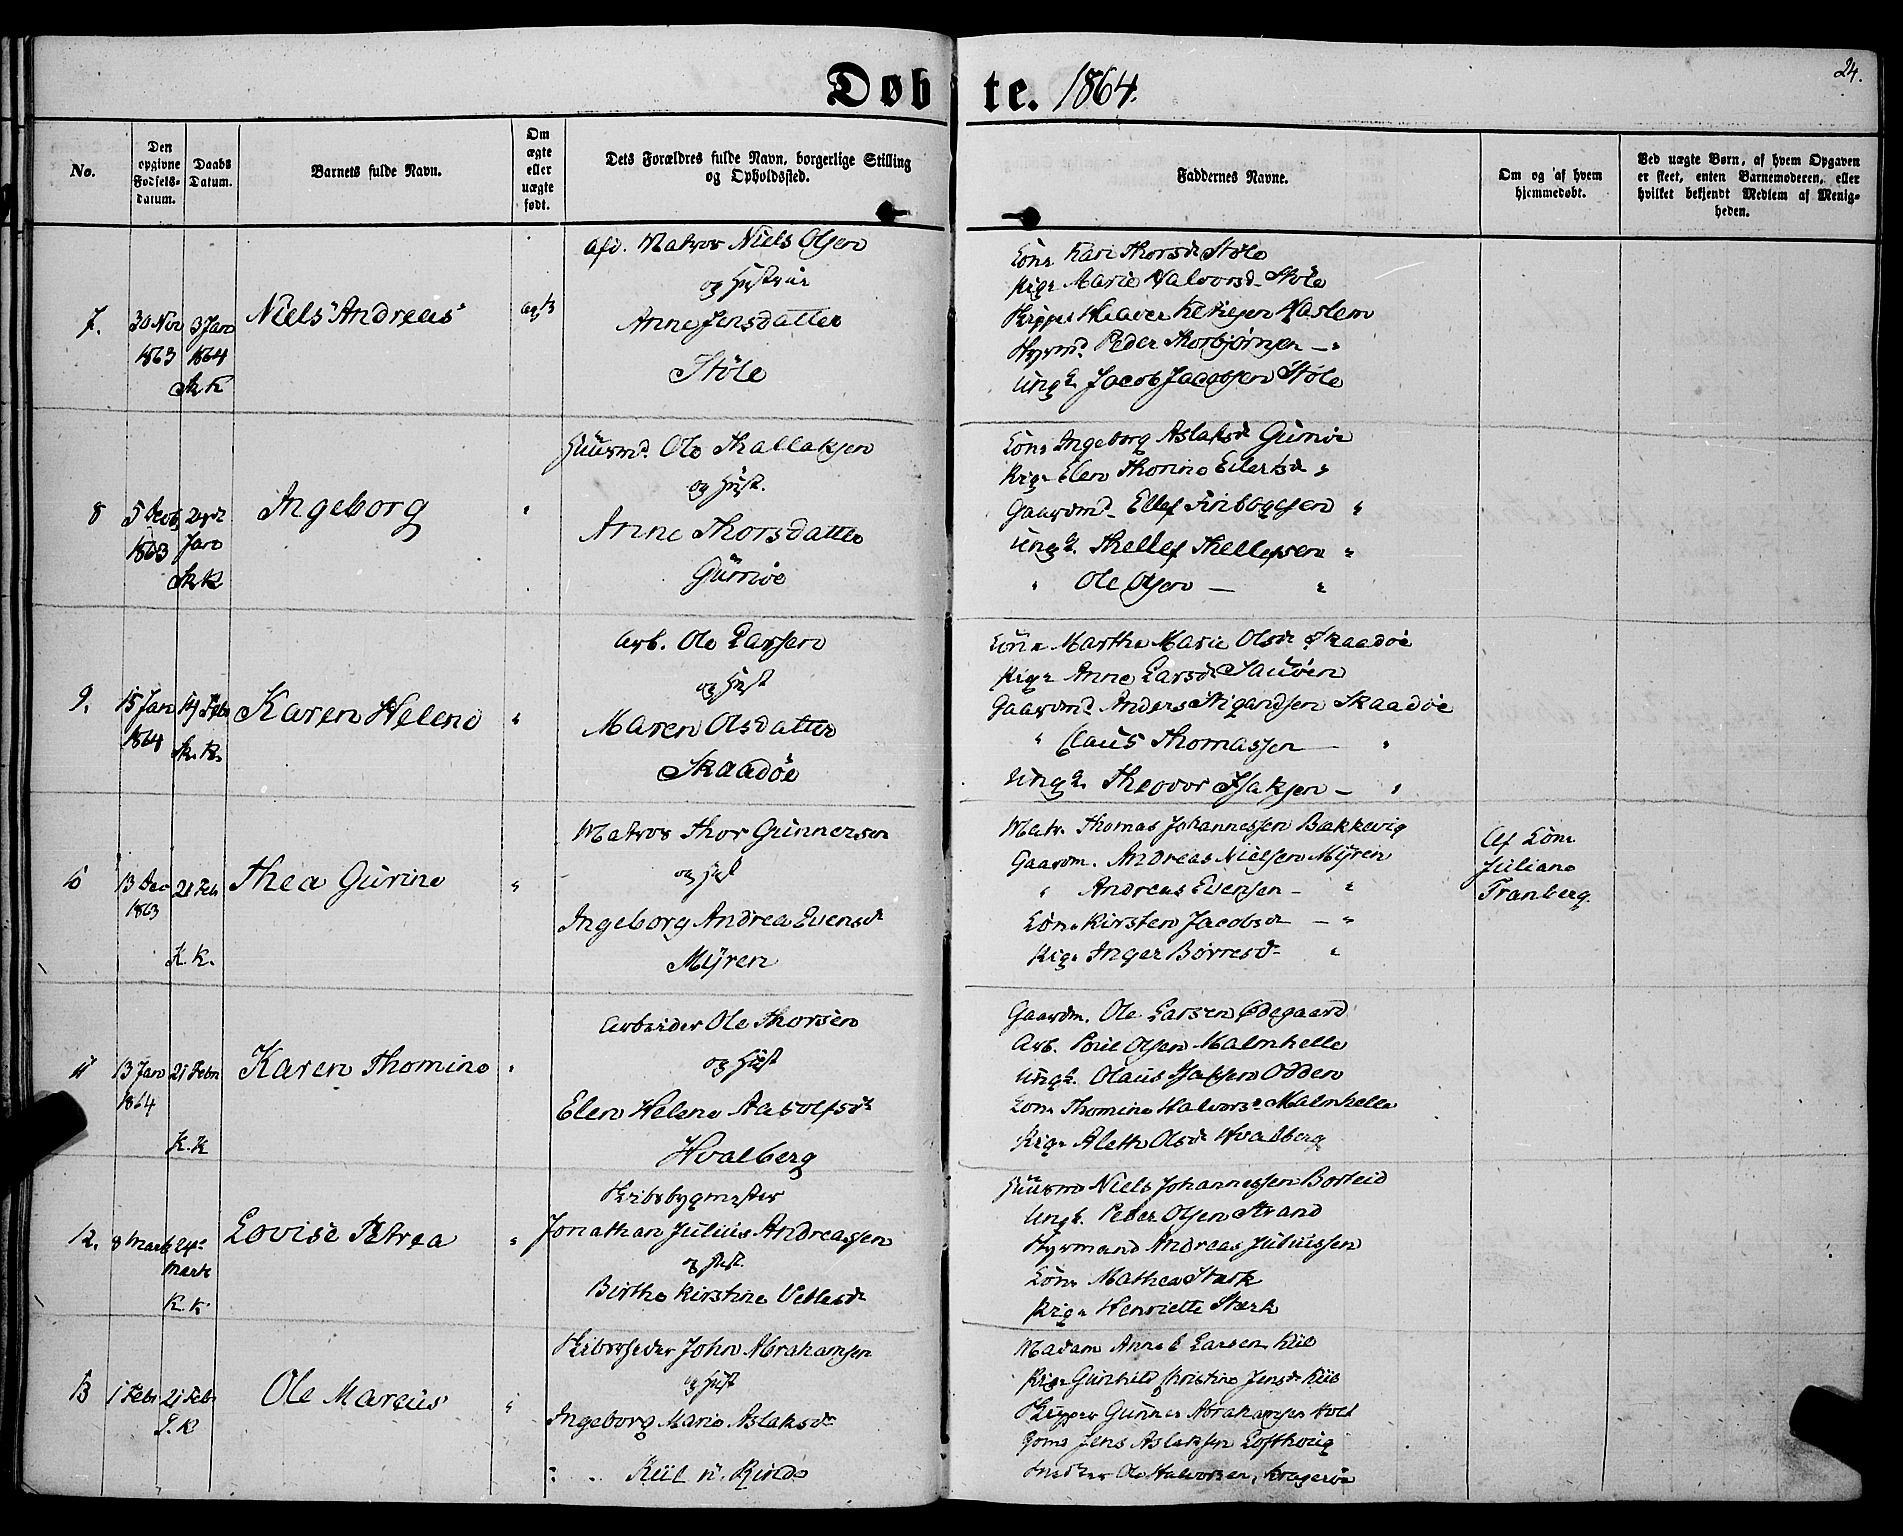 Døbte. 1864.
24.
No.
Den opgivne Fødsels-datum.
Daabs Datum.
Barnets fulde Navn.
Om ægte eller uægte født.
Dets Forældres fulde Navn, borgerlige Stilling og Opholdssted.
Faddernes Navne.
Om og af hvem hjemmedøbt.
Ved uægte Børn, af hvem Opgaven er skeet, enten Barnemoderen, eller hvilket bekjendt Medlem af Menigheden.
7.
30 Nov 1863
3 Jan 1864
Sk K
Niels Andreas
ægte
afd. Matros Niels Olsen
og Hustrue
Anne Jensdatter
Støle
Kone Kari Thorsd Støle
Pige Marie Halvorsd. Støle
Skipper Haaver
Styrmd. Peder Thorbjørnsen — "
Ungk. Jacob Jacobsen Støle
8
5 Decb 1863
24de Jan
Sk K
Ingeborg
"
Huusmd. Ole Thallaksen
og Hust.
Anne Thorsdatter
Gumøe
Kone Ingeborg Aslaksd Gumøe
Pige Elen Thorine Eilertsd "
Gaardmd. Ellef Finbogesen "
Ungk. Thellef Thellefsen "
" Ole Olsen — "
9.
15 Jan 1864
14 Feb
Sk. K.
Karen Helene
"
Arb. Ole Larsen
og Hust
Maren Olsdatter
Skaadøe
Kone Marthe Marie Olsd Skaadøe
Pige Anne Larsd Sauøen
Gaardmd. Anders Stigandsen Skaadøe
" Claus Thomassen — "
Ungk. Theodor Isaksen — "
10
13 Dec 1863
21 Feb
K. K.
Thea Gurine
"
Matros Thor Gunnersen
og Hust
Ingeborg Andrea Evensd
Myren
Matr. Thomas Johannessen Bækkevig
Gaardm. Andreas Nielsen Myren
" Andreas Evensen — "
Kone Kirsten Jacobsd — "
Pige Inger Børresd — "
Af Kone
Juliane
Tranberg.
11
13 Jan 1864
21 Febr
K. K
Karen Thomine
"
Arbeider Ole Thorsen
og Hust
Elen Helene Aadolfsd
Hvalberg
Gaardm. Ole Larsen Ødegaard
Arb. Poul Olsen Malmhelle
Ungk. Olaus Isaksen Odden
Kone Thomine Halvorsd Malmhelle
Pige Alethe Olsd Hvalberg
12.
8 Marts
24de Marts
K. K
Lovise Petrea
"
Skibsbygmester
Jonathan Julius Andreassen
og Hust.
Birthe Kirstine Vetlesd
Huusmd Niels Johannessen
Ungk. Peder Olsen Strand
Styrmand Andreas Juliussen
Kone Mathea Stærk
Pige Henriette Stærk
13
1 Febr
21 Febr
Ole Marcus
"
Skibsreder John Abrahamsen
og Hust
Ingeborg Marie Aslaksd
Kiil
Madam Anne E Larsen Kiil
Pige Gunhild Christine Jensd Kiil
Skipper Gunner Abrahamsen Holt
Jens Aslaksen Lofthoug
Ole Halvorsen, Kragerøe